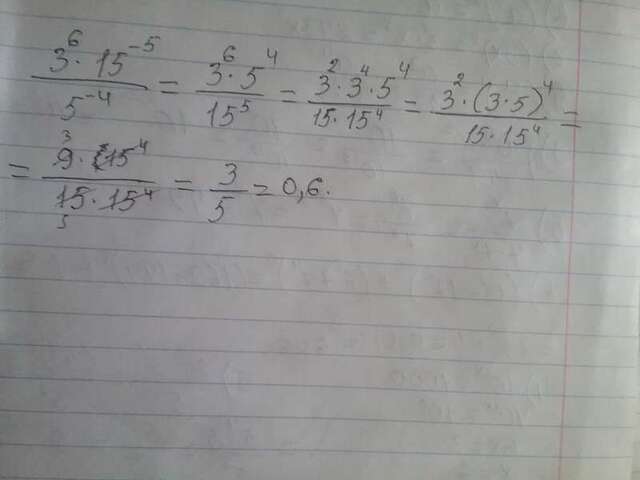 3⁶·15⁻⁵/5⁻⁴ = 3⁶·5⁴/15⁵ = 3²·3⁴·5⁴/15·15⁴ = 3²·(3·5)⁴/15·15⁴ =
= 9·15⁴/15·15⁴ = 3/5 = 0,6.